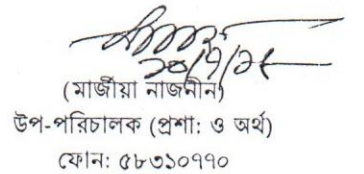 (মার্জীয়া নাজনীন)
উপ-পরিচালক (প্রশা: ও অর্থ)
ফোন: ৫৮৩১০৭৭০